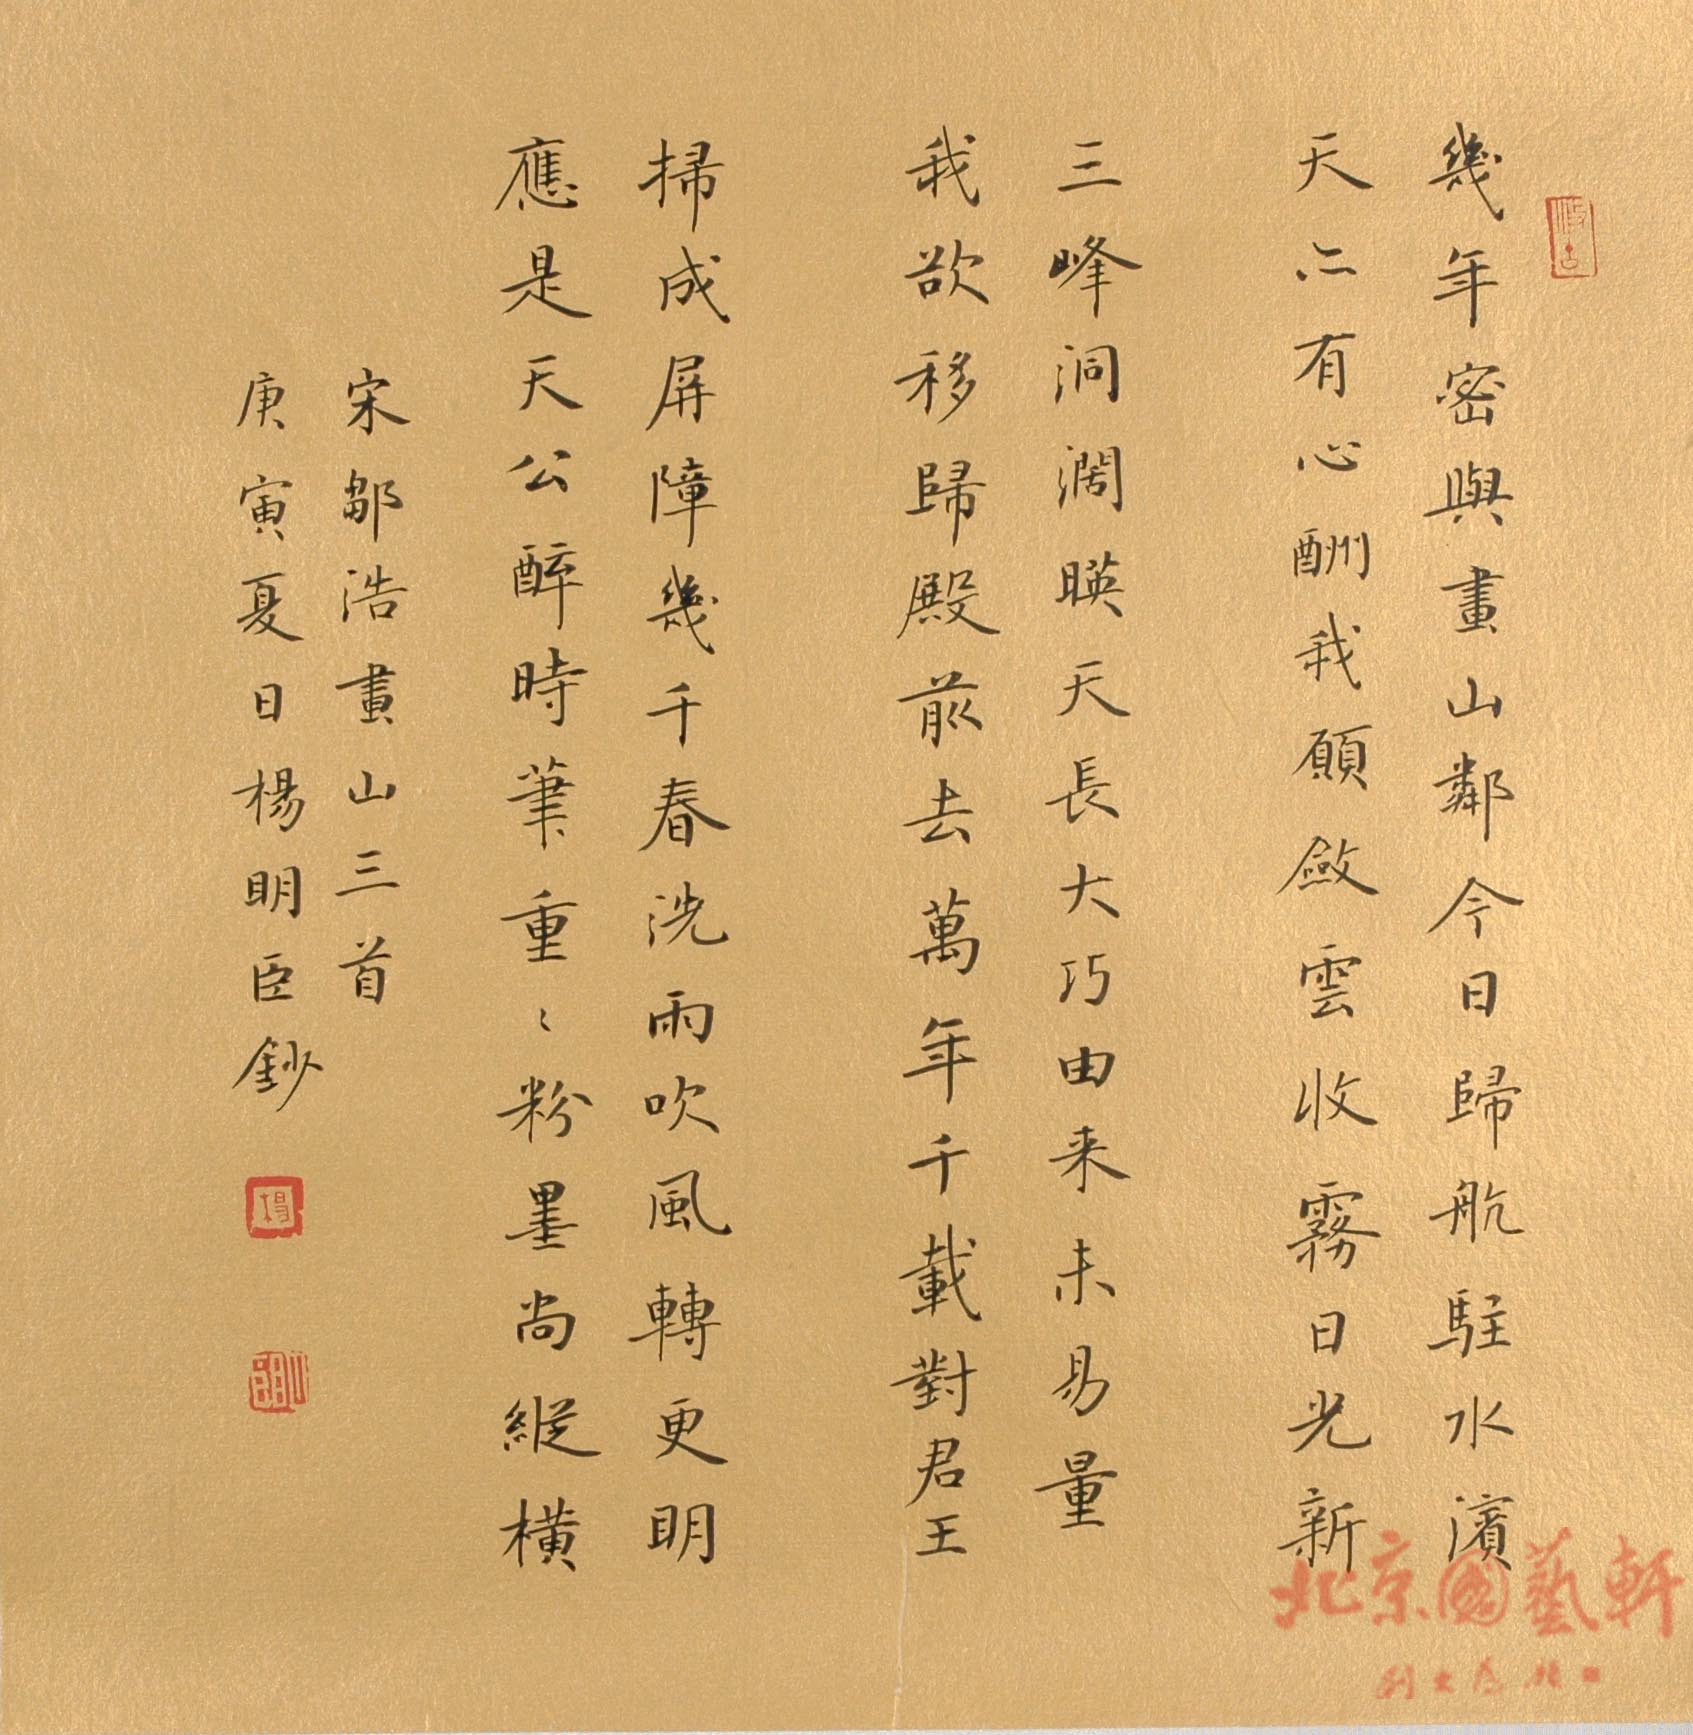 幾年密與畫山鄰今日歸航駐水濱
天亦有心酬我願斂雲收霧日光新
三峰洞濶暎天長大巧由来未易量
我欲移歸殿前去萬年千載對君王
掃成屏障幾千春洗雨吹風轉更明
應是天公醉時筆重〻粉墨尚縱橫
宋鄒浩畫山三首
庚寅夏日楊明臣鈔
楊
北京國藝軒